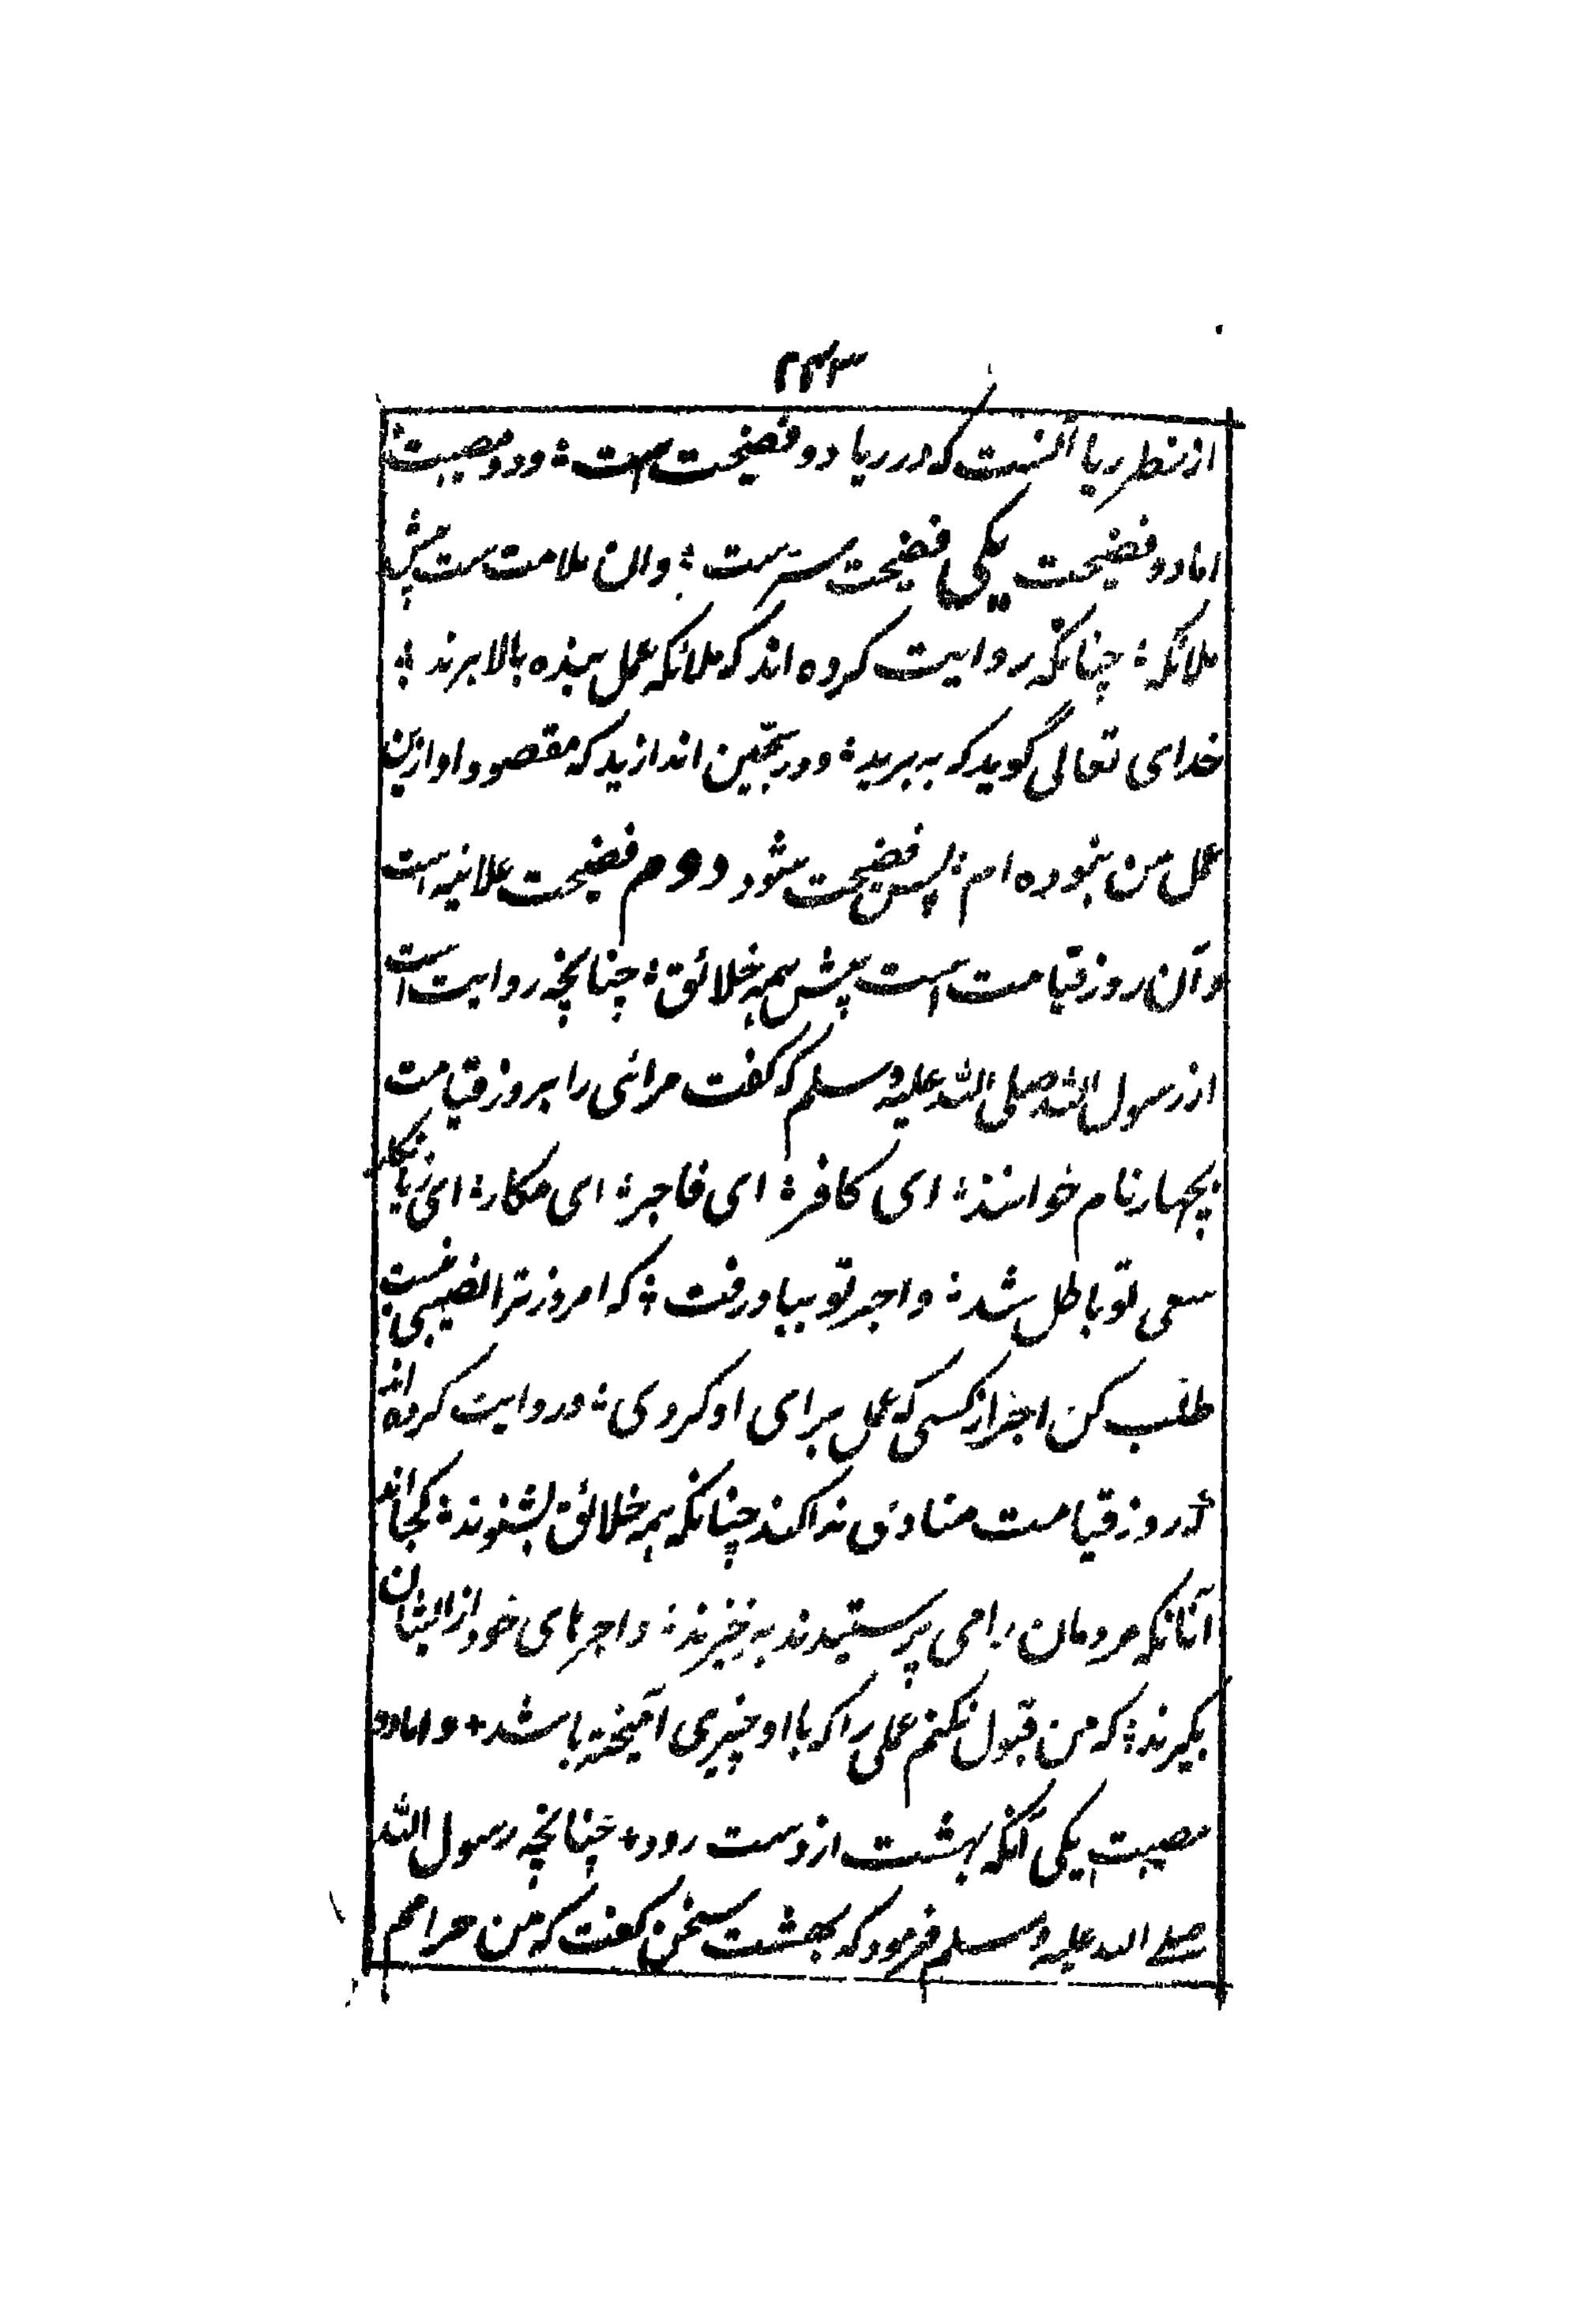 ۲۴۳
از نظر ریا آنست که در ریا دو فضیحت است ؛ و دو مصیبت ؛
اما دو فضیحت یکی فضیحت سرست ؛ و ان ملامت ست پیش
ملائکه ؛ چنانکه روایت کرده اند که ملائکه عمل بنده بالا برند ؛
خدای تعالی گوید که به برید ؛ و در سجّین اندازید که مقصود او ازین
عمل من نبوده ام ؛ پس فضیحت شود دوم فضیحت علانیه است
و آن روز قیامت است پیش همه خلائق ؛ چنانچه روایت است
از رسول الله صلی الله علیه وسلم که گفت مرائی را بروز قیامت
بچهار نام خوانند ؛ ای کافر ؛ ای فاجر ؛ ای مکار ؛ ای زیانکار
سعی تو باطل شد ؛ و اجر تو بباد رفت ؛ که امروز ترا نصیبی نیست
طلب کن اجر از کسی که عمل برای او کردی ؛ و روایت کرده اند
که روز قیامت منادی ندا کند چنانکه همه خلائق بشنوند ؛ کجا اند
آنانکه مردمان را می پرستیدند به خیزند ؛ و اجرهای خود از ایشان
بگیرند ؛ که من قبول نکنم عملی را که با او چیزی آمیخته باشد + و اما دو
مصیبت یکی آنکه بهشت از دست رود + چنانچه رسول الله
صلے الله علیه وسلم فرمود که بهشت سخن گفت که من حرامم